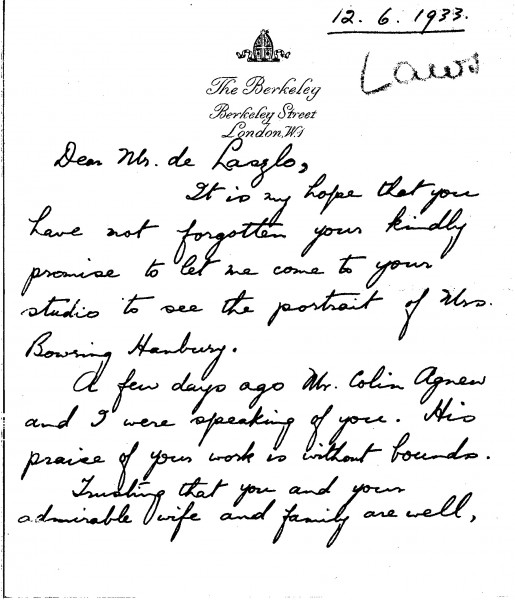 12. 6. 1933.
The Berkeley
Berkeley Street
London, W.1
Dear Mr. de Laszlo,
It is my hope that you
have not forgotten your kindly
promise to let me come to your
studio to see the portrait of Mrs.
Bowring Hanbury.
A few days ago Mr. Colin Agnew
and I were speaking of you. His
praise of your work is without bounds.
Trusting that you and your
admirable wife and family are well,